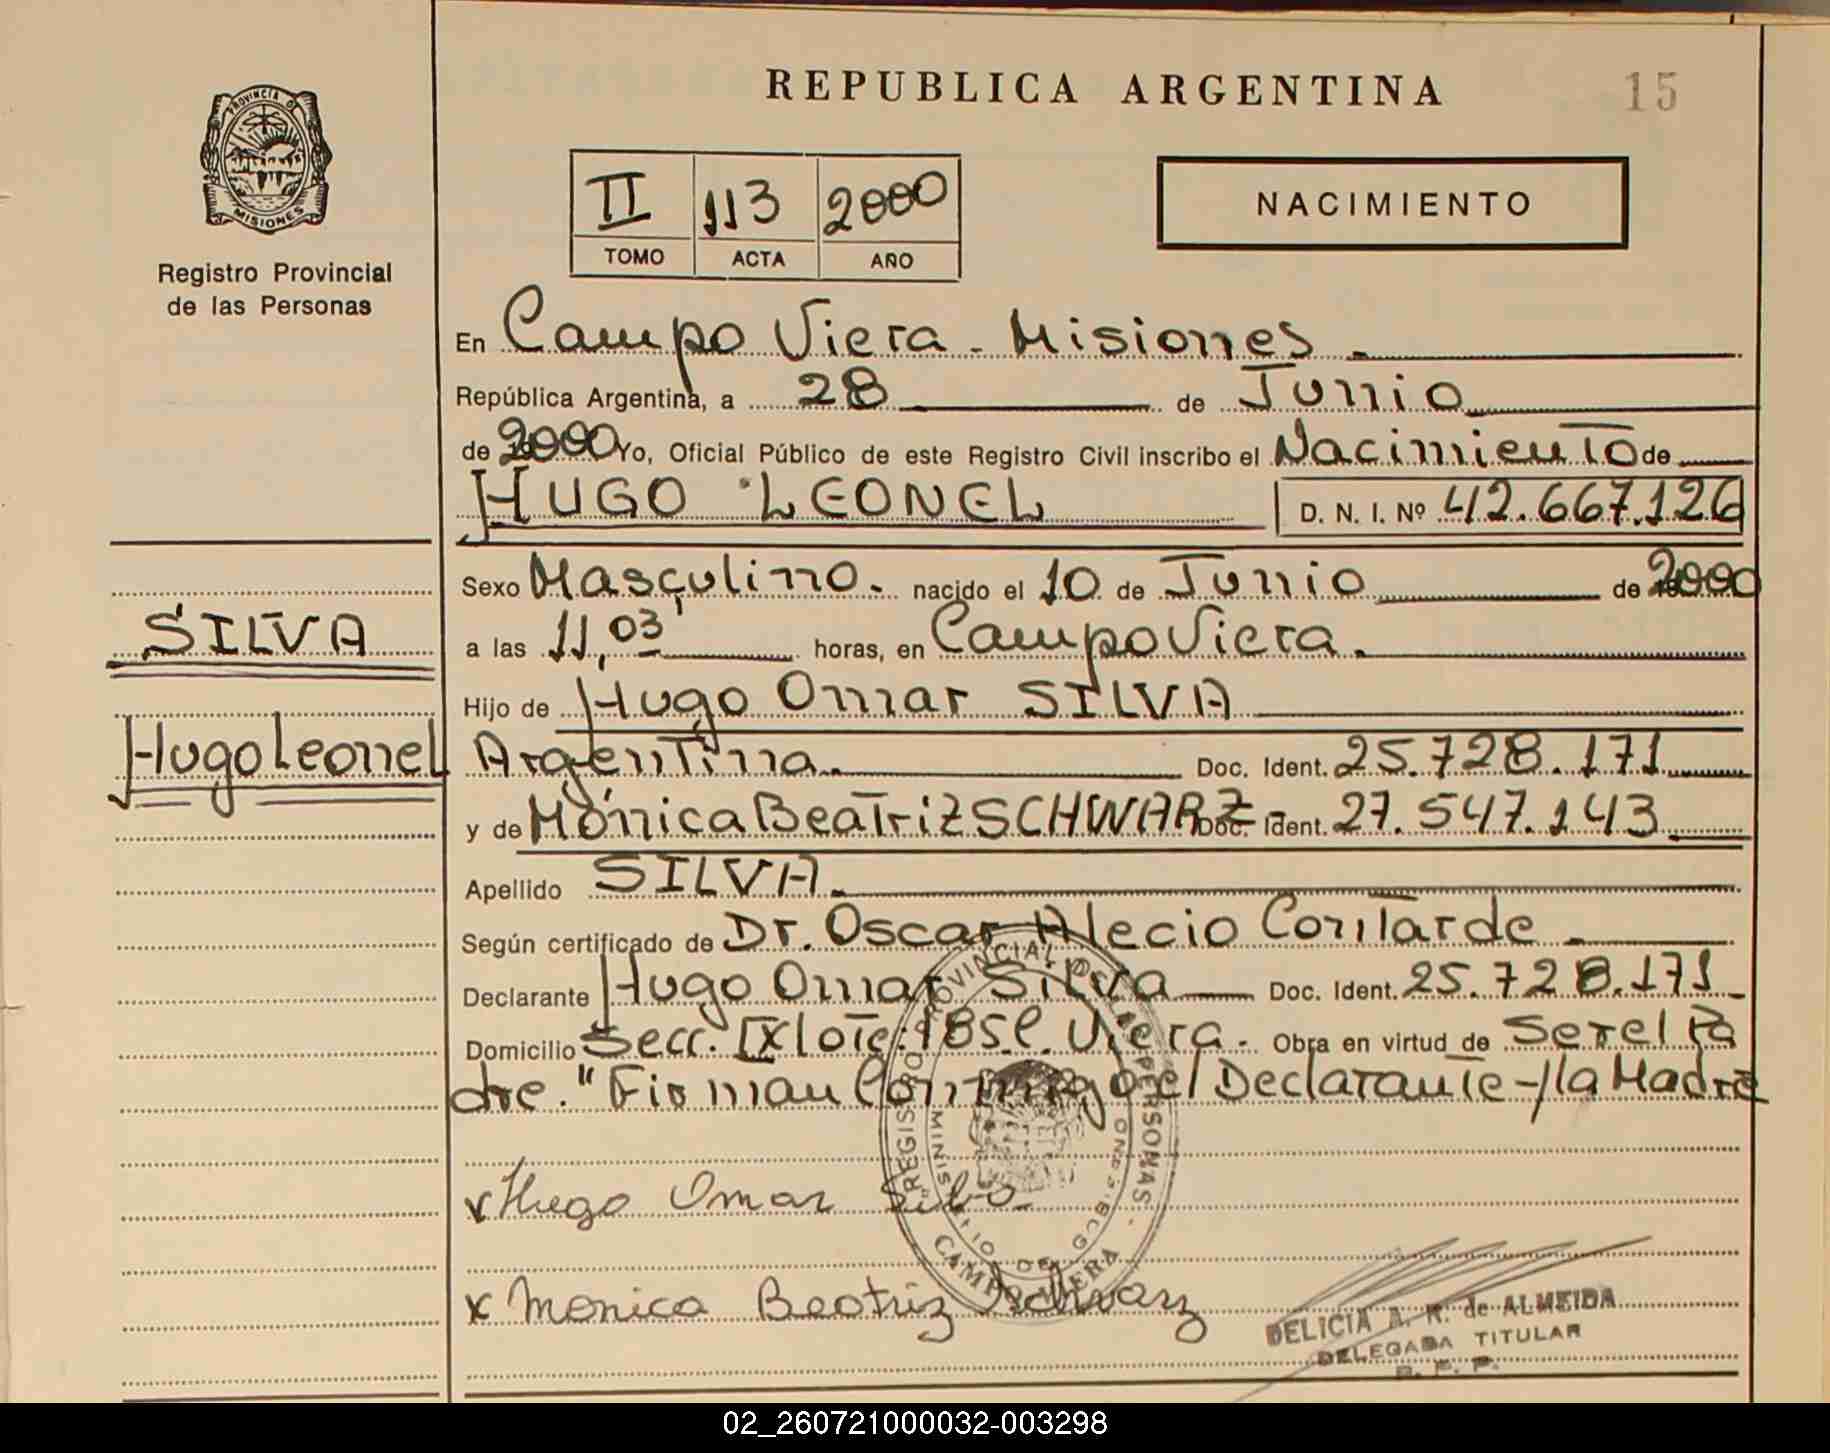 REPUBLICA ARGENTINA
15
PROVINCIA DE
MISIONES
Registro Provincial
de las Personas
II 113 2000
TOMO ACTA AÑO
NACIMIENTO
En Campo Viera - Misiones
República Argentina, a 28 de Junio
de 2000 Yo, Oficial Público de este Registro Civil inscribo el Nacimiento de
HUGO LEONEL D. N. I. Nº 42.667.126
Sexo Masculino. nacido el 10 de Junio de 2000
SILVA
a las 11,03' horas, en Campo Viera.
Hijo de Hugo Omar SILVA
Hugo Leonel
Argentina. Doc. Ident. 25.728.171
y de Mónica Beatriz SCHWARZ - Doc. Ident. 27.547.143
Apellido SILVA.
Según certificado de Dr. Oscar Alecio Contarde -
Declarante Hugo Omar Silva Doc. Ident. 25.728.171
Domicilio Secc. IX lote: 185 C. Viera. Obra en virtud de Ser el Pa
dre." Firman Conmigo el Declarante -/la Madre
REGISTRO PROVINCIAL DE LAS PERSONAS
MINISTERIO DE GOBIERNO
CAMPO VIERA
x Hugo Omar Silva
x Monica Beatriz Schwarz
DELICIA A. R. de ALMEIDA
DELEGADA TITULAR
R. P. P.
02_260721000032-003298